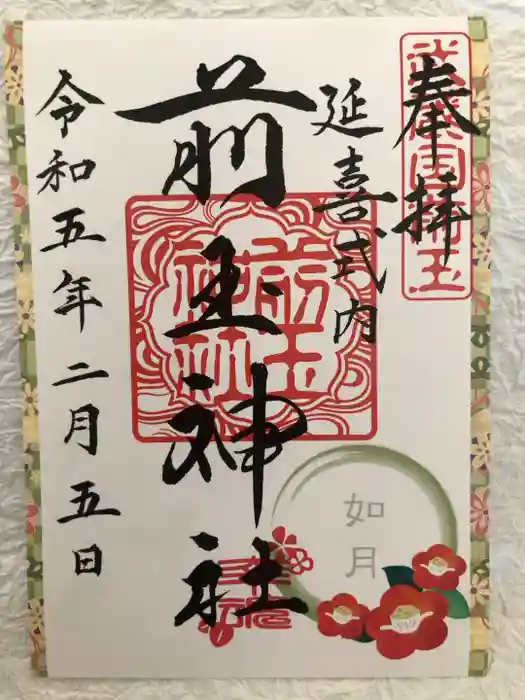 奉拝
延喜式内
前玉神社
令和五年二月五日
前玉
神社
如月